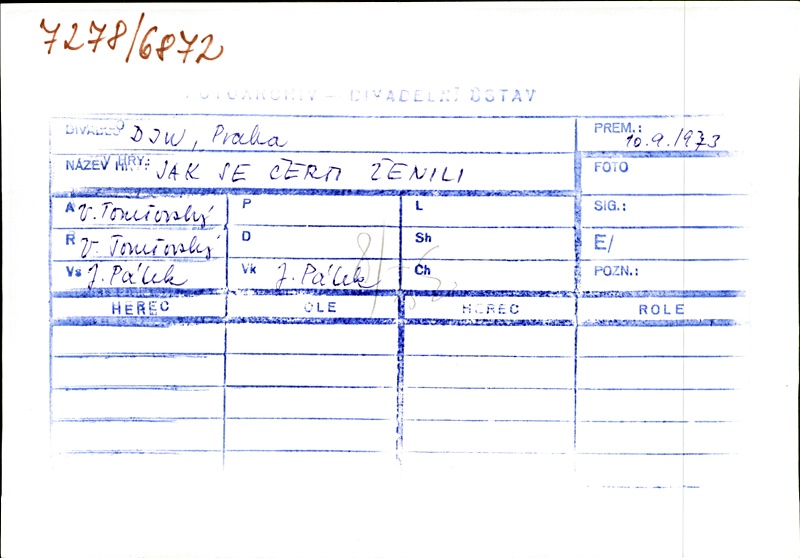 7278/6872
FOTOARCHIV – DIVADELNÍ ÚSTAV
DIVADLO DJW, Praha
PREM.: 10.9.1973
NÁZEV HRY: JAK SE ČERTI ŽENILI
FOTO
A V. Tomšovský P L SIG.:
R V. Tomšovský D Sh E/
Vs J. Pálek Vk J. Pálek Ch POZN.:
HEREC OLE HEREC ROLE